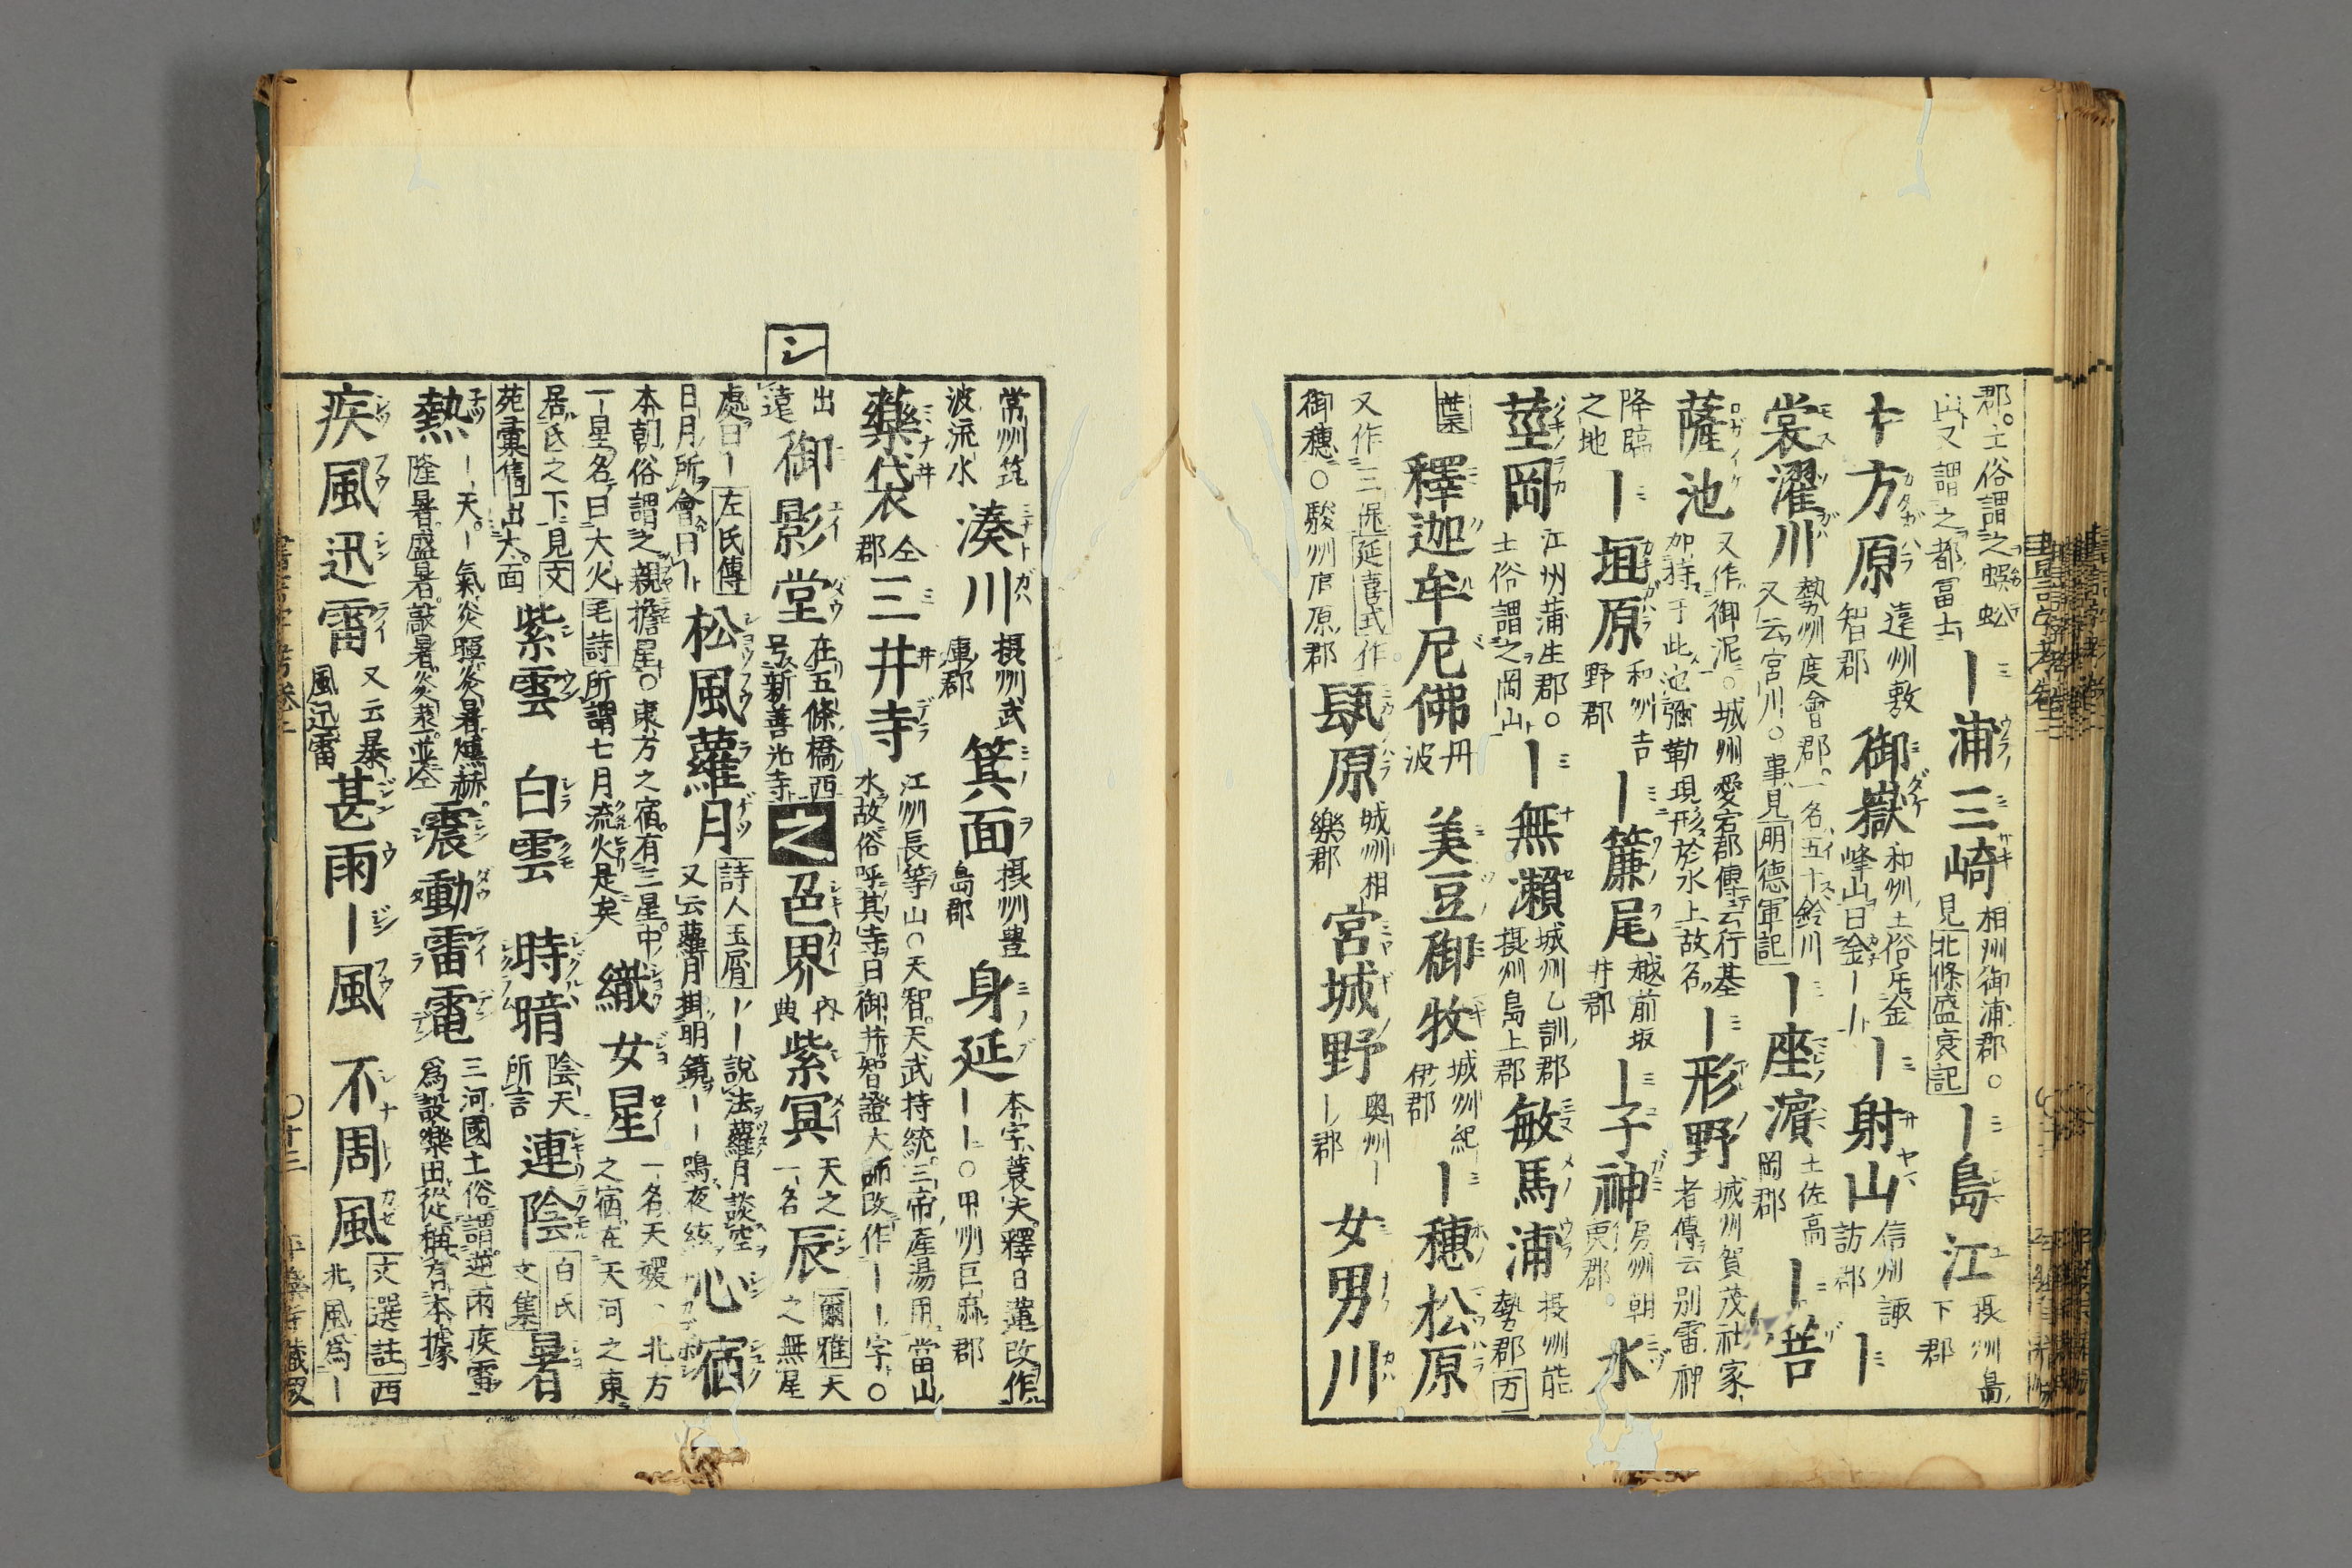 郡。土俗謂之蜈蚣
山又謂之都富士
｜浦三崎 相州御浦郡。○
見北條盛衰記
｜島江 摂州島
下郡
方原 遠州敷
智郡
御嶽 和州土俗斥金
峰山曰金｜｜
｜射山 信州諏
訪郡
｜
裳濯川 勢州度會郡。一名五十鈴川
又云宮川。○事見明德軍記
｜座濱 土佐高
岡郡
｜菩
薩池 又作御泥。○城州愛宕郡傳云行基
加持于此池彌勒現形於水上故名
｜形野 城州賀茂社家
者傳云別雷神
降臨
之地
｜垣原 和州吉
野郡
｜簾尾 越前坂
井郡
｜子神 房州朝
夷郡。
水
莖岡 江州蒲生郡。○
土俗謂之岡山
｜無瀨 城州乙訓郡
摂州島上郡
敏馬浦 摂州能
勢郡万
葉
釋迦牟尼佛 丹
波
美豆御牧 城州紀
伊郡
｜穗松原
又作三保延喜式作
御穗。○駿州庵原郡
瓱原 城州相
樂郡
宮城野 奥州｜
｜郡
女男川
常州筑
波流水
湊川 摂州武
庫郡
箕面 摂州豊
島郡
身延 本字蓑夫釋日蓮改作
｜｜○甲州巨麻郡
藥袋 仝
郡
三井寺 江州長等山○天智天武持統三帝産湯用當山
水故俗呼其寺曰御井智證大師改作｜｜字○
出
遠
御影堂 在五條橋西
号新善光寺
シ
之
色界 內
典
紫冥 天之
一名
辰 爾雅天
之無星
處曰｜左氏傳
日月所會曰｜
松風蘿月 詩人玉屑｜｜說法蘿月談空
又云蘿月掛明鏡｜｜鳴夜絃
心宿
本朝俗謂之親擔星○東方之宿有三星中
｜星名曰大火毛詩所謂七月流火是矣
織女星 一名天媛、北方
之宿在天河之東
居氐之下見文
苑彙雋出大面
紫雲
白雲
時暗 陰天
所言
連陰 白氏
文集
暑
熱 ｜天。｜氣炎曝炎暑爞赫
隆暑盛暑敲暑炎蒸並仝
震動雷電 三河國土俗謂逆雨疾雷
爲設樂田從稱有本據
疾風迅雷 又云暴
風迅雷
甚雨｜風
不周風 文選註西
北風爲｜